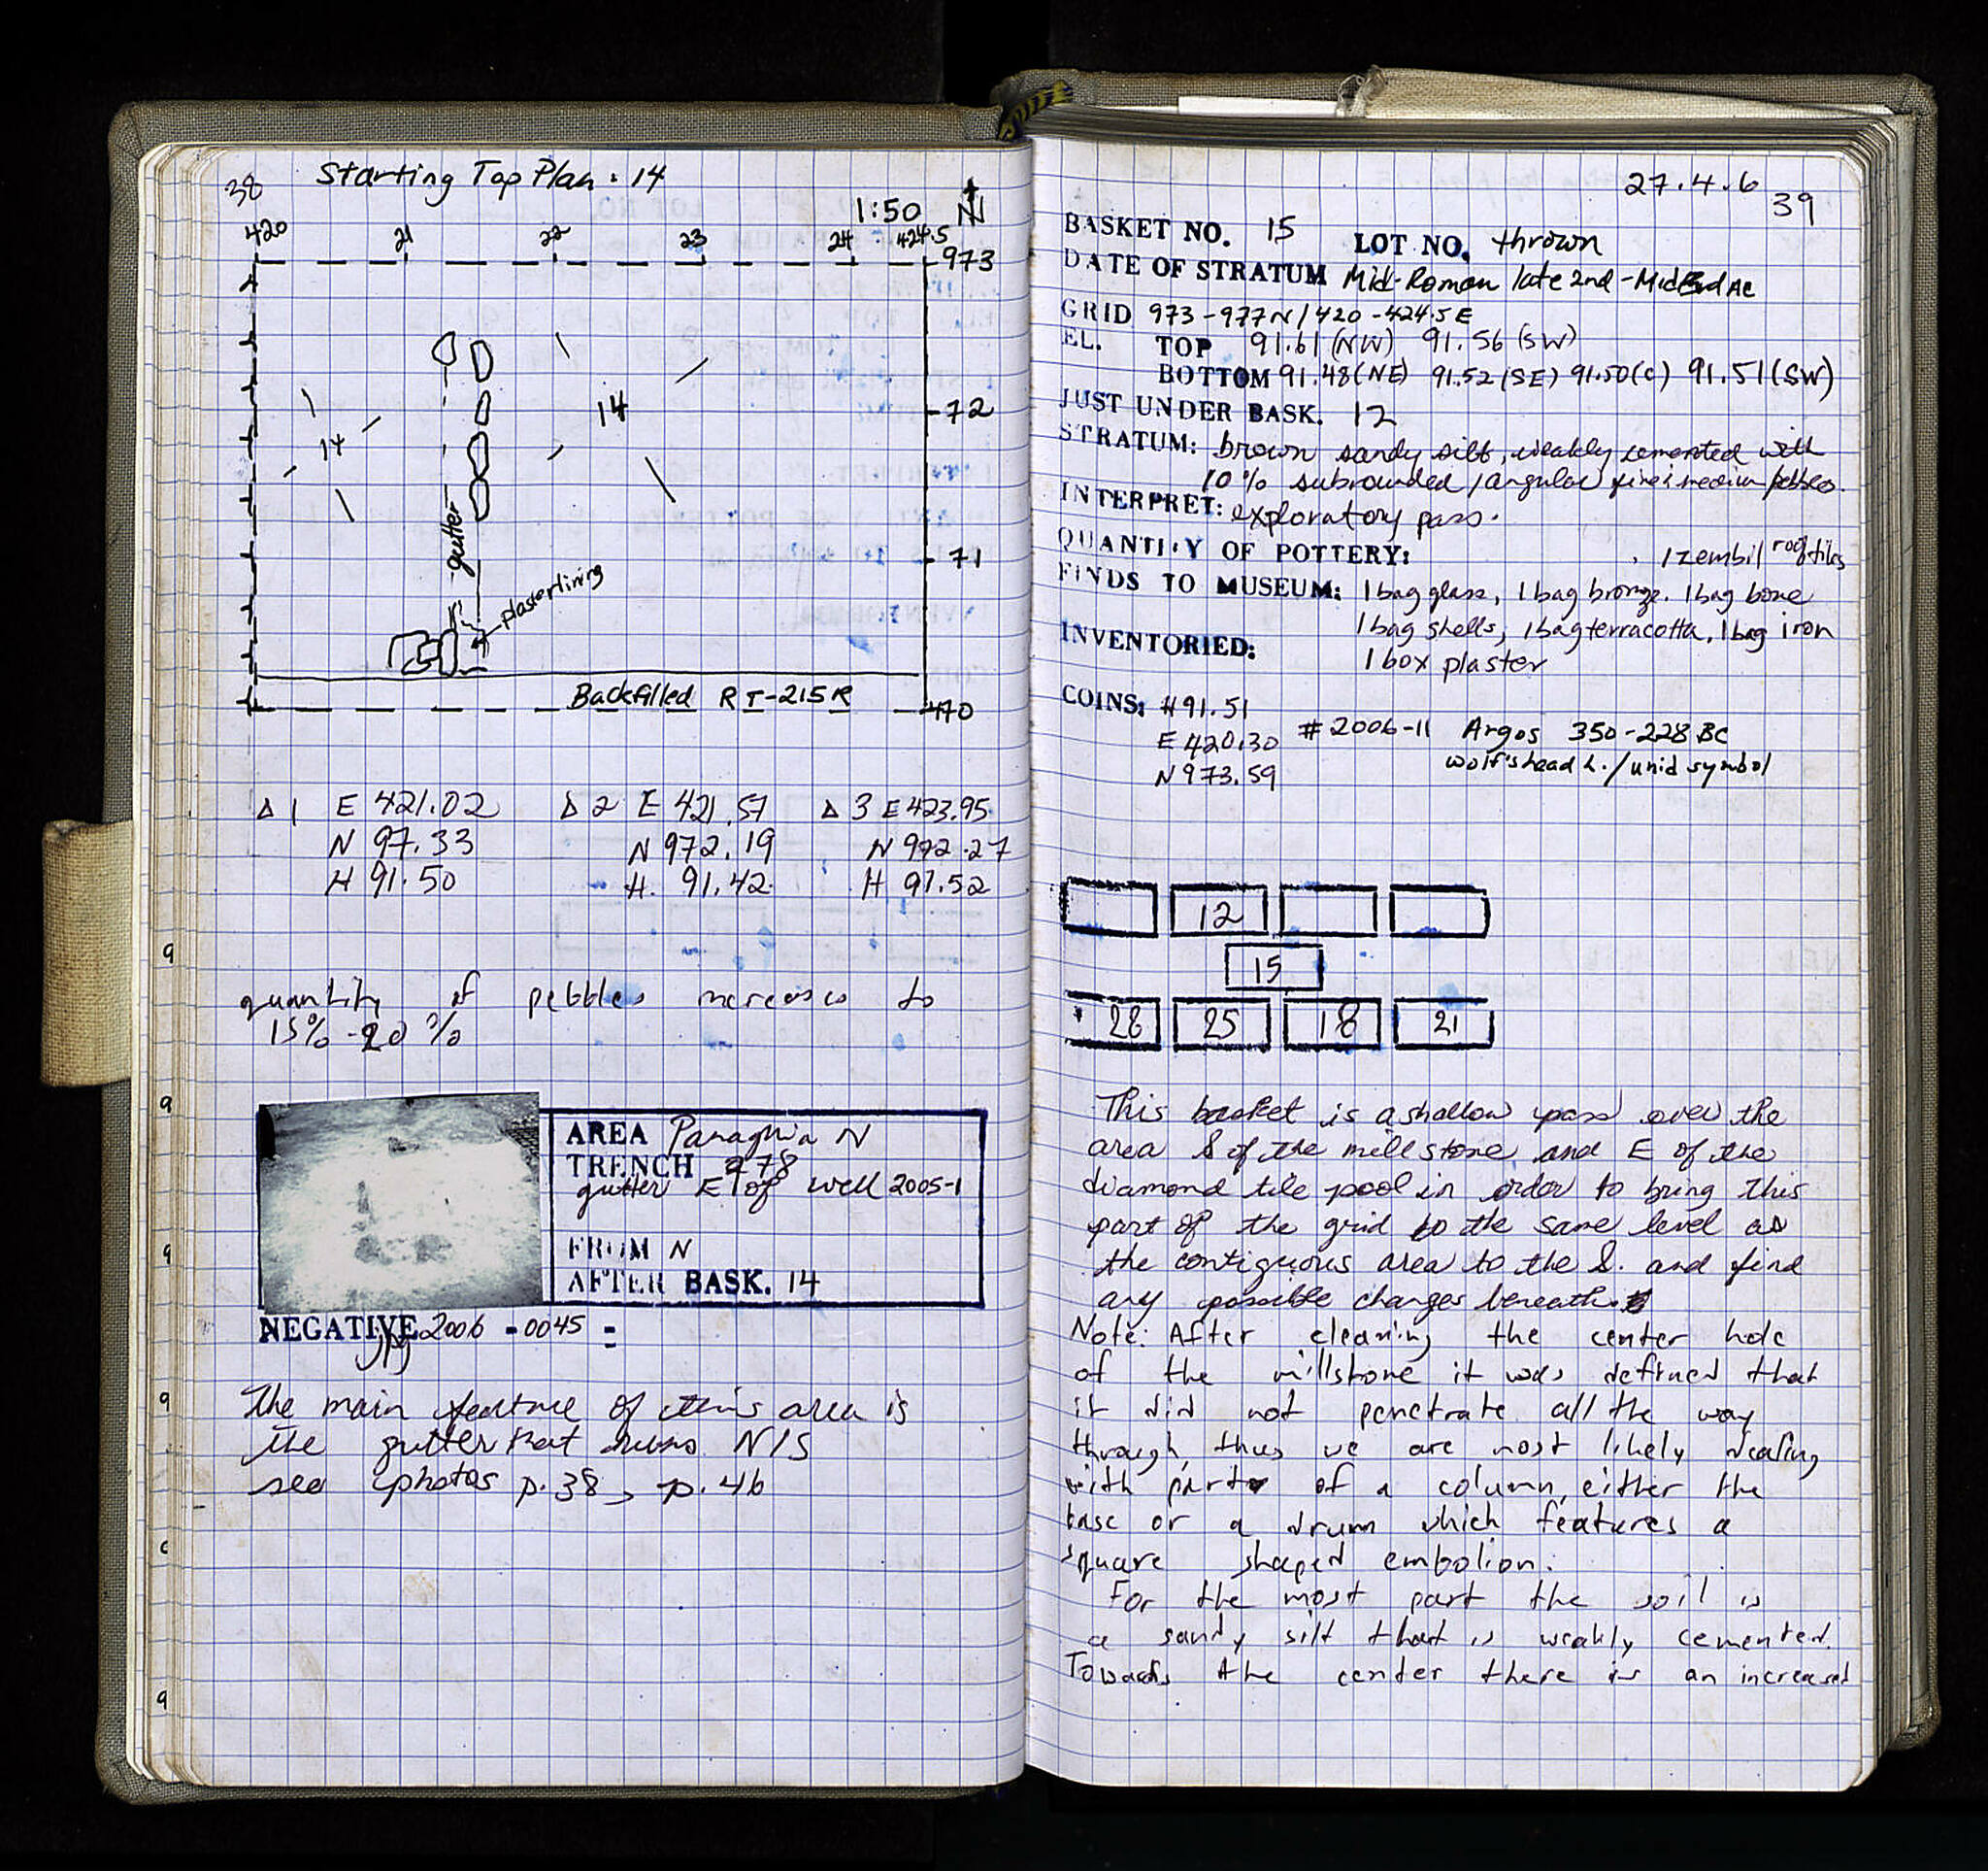 38
Starting Top Plan. 14
1:50 N
420 21 22 23 24 424.5
973
14
72
14
gutter
71
plaster lining
Backfilled RT-215R
470
Δ 1 E 421.02
N 97.33
H 91.50
Δ 2 E 421.57
N 972.19
H. 91.42
Δ 3 E 423.95
N 972.27
H 91.52
quantity of pebbles increases to
15% - 20 %
AREA Panaghia N
TRENCH 978
gutter E of well 2005-1
FROM N
AFTER BASK. 14
NEGATIVE 2006 - 0045 -
jpg
The main feature of this area is
the gutter that runs N/S
see photos p. 38, p. 46
27.4.6
39
BASKET NO. 15 LOT NO. thrown
DATE OF STRATUM Mid-Roman late 2nd - Mid 3rd AC
GRID 973-977N/420-424.5E
EL. TOP 91.61 (NW) 91.56 (SW)
BOTTOM 91.48 (NE) 91.52 (SE) 91.50 (C) 91.51 (SW)
JUST UNDER BASK. 12
STRATUM: brown sandy silt, weakly cemented with
10% subrounded/angular fine & medium pebbles.
INTERPRET: exploratory pass.
QUANTITY OF POTTERY: , 1 zembil roof tiles
FINDS TO MUSEUM: 1 bag glass, 1 bag bronze. 1 bag bone
1 bag shells, 1 bag terracotta, 1 bag iron
INVENTORIED: 1 box plaster
COINS: H 91.51
E 420.30 # 2006-11 Argos 350-228 BC
N 973.59 wolf's head l. / unid symbol
12
15
28 25 18 21
This basket is a shallow pass over the
area S of the millstone and E of the
diamond tile pool in order to bring this
part of the grid to the same level as
the contiguous area to the S. and find
any possible changes beneath.
Note: After cleaning the center hole
of the millstone it was defined that
it did not penetrate all the way
through, thus we are most likely dealing
with part of a column, either the
base or a drum which features a
square shaped embolion.
For the most part the soil is
a sandy silt that is weakly cemented.
Towards the center there is an increased